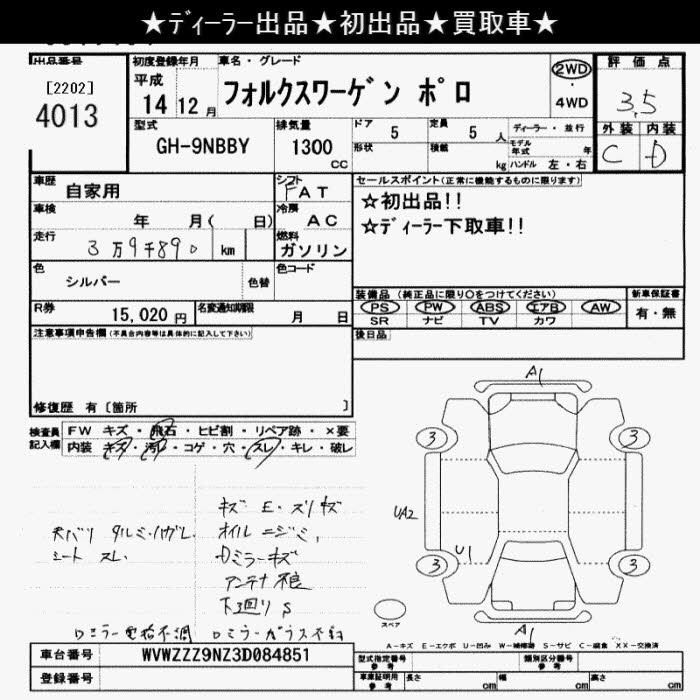 ★ディーラー出品★初出品★買取車★
出品番号 初度登録年月 車名・グレード 評価点
[2202] 平成 フォルクスワーゲン ポロ 2WD
4013 14 12月 ・ 4WD 3.5
型式 排気量 ドア 5 定員 5人 ディーラー・並行 外装 内装
GH-9NBBY 1300cc 形状 積載 kg モデル年式 年 C D
ハンドル 左・右
車歴 自家用 シフト FAT セールスポイント(正常に機能するものに限ります)
車検 年 月( 日) 冷房 AC ☆初出品!!
走行 3万9千890 km 燃料 ガソリン ☆ディーラー下取車!!
色 シルバー 色替 色コード
装備品(純正品に限り○をつけてください) 新車保証書
R券 15,020円 名変通知期限 月 日 PS PW ABS エアB AW 有・無
SR ナビ TV カワ
注意事項申告欄(不具合内容等は具体的に記入して下さい) 後日品
修復歴 有[箇所 ]
検査員記入欄 FW キズ・飛石・ヒビ割・リペア跡・×要
内装 キズ・汚レ・コゲ・穴・スレ・キレ・破レ
A1
3 3
キズ E・スリキズ
天バリ タルミ・ハガレ オイルニジミ
シート スレ Dミラーキズ
UA2
U1
3 3
アンテナ不良
下廻りS
スペア
A1
A-キズ E-エクボ U-凹み W-補修跡 S-サビ C-腐食 XX-交換済
車台番号 WVWZZZ9NZ3D084851 型式指定番号 参考 類別区分番号 参考
登録番号 車庫証明用 参考 長さ cm 幅 cm 高さ cm